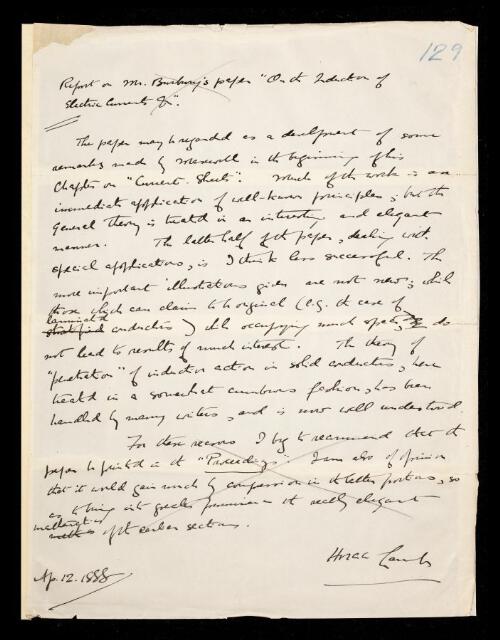 129
Report on Mr. Burbury's paper "On the Induction of
Electric Currents &c".
The paper may be regarded as a development of some
remarks made by Maxwell in the beginning of his
Chapter on "Current-Sheets". Much of the work is an
immediate application of well-known principles, but the
general theory is treated in an interesting and elegant
manner. The latter half of the paper, dealing with
special applications, is I think less successful. The
more important illustrations given are not new; while
those which can claim to be original (e.g. the case of
laminated
stratified conductors) while occupying much space, do
not lead to results of much interest. The theory of
"penetration" of inductive action in solid conductors, here
treated in a somewhat cumbrous fashion, has been
handled by many writers, and is now well understood.
For these reasons I beg to recommend that the
paper be printed in the "Proceedings". I am also of opinion
that it would gain much by compression in its latter portions, so
as to bring into greater prominence the really elegant
mathematics
of the earlier sections.
Horace Lamb
Ap. 12. 1888